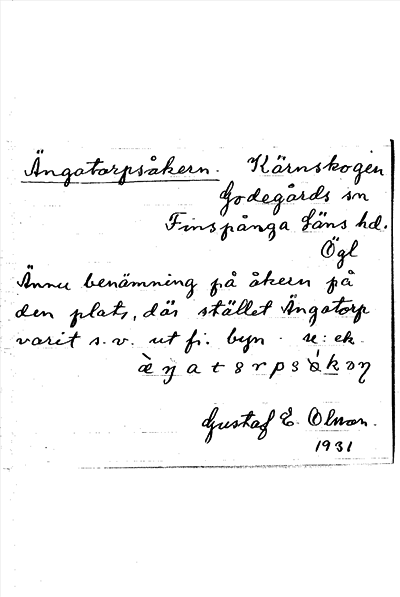 Ängatorpsåkern. Kärnskogen
Godegårds sn
Finspånga Läns hd.
Ögl
Ännu benämning på åkern på
den plats, där stället Ängatorp
varit s.v. ut fr. byn. se: ek.
Gustaf E. Olson.
1931